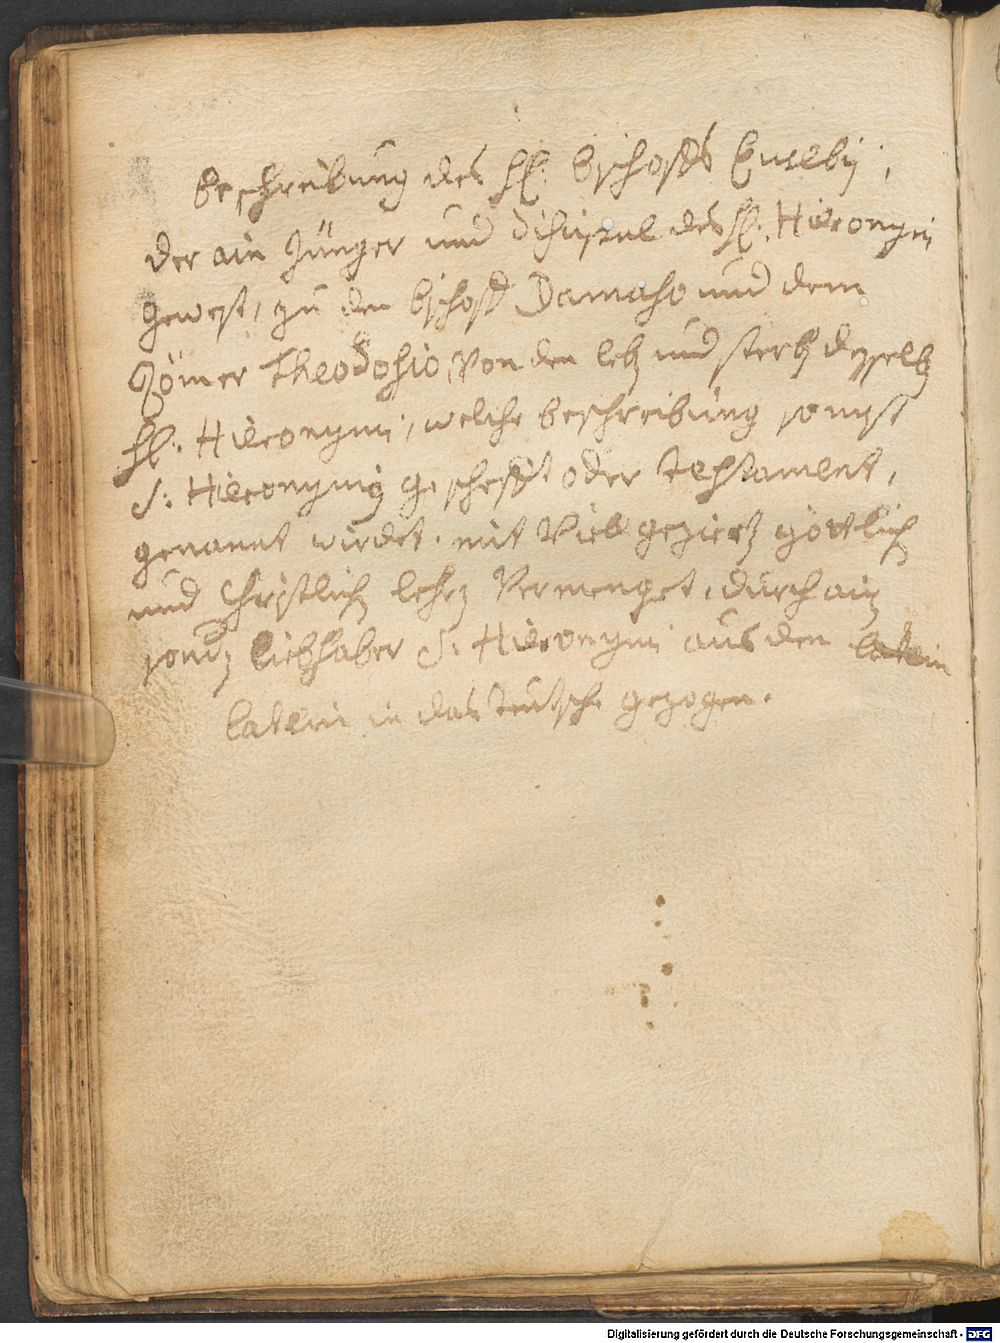 beschreibung des hl. bschoffs Eusebij,
der ain Jünger und discipul des hl. Hieronymi
gewest, zu den bschoff Damaso und dem
Römer Theodosio, Von den leb und sterb desselb
hl. Hieronymi, welche beschreibung sonnst
S: Hieronymi geschefft oder testament,
genannt wirdet. mit Viel geziert göttlich
und Christlich lehr Vermenget, durch ain
sond liebhaber S: Hieronymi aus den latein
latein in das teutsche gezogen.
Digitalisierung gefördert durch die Deutsche Forschungsgemeinschaft - DFG